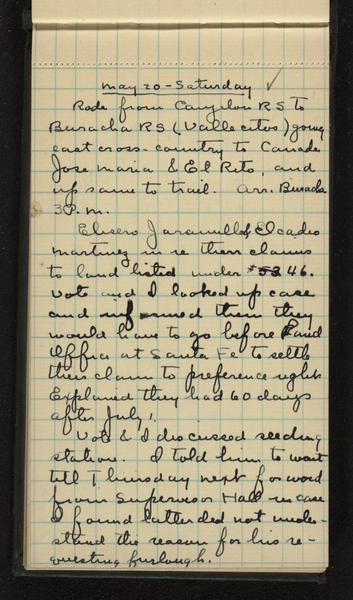 May 20 - Saturday ✓
Rode from Canjilon RS to
Buracha RS (Vallecitos) going
east cross-country to Canada
Jose Maria & El Rito, and
up same to trail. Arr. Buracha
3 P.m.
Elisero Jaramillo & Elcadio
Martinez in re their claims
to land listed under # 46.
Vote and I looked up case
and informed them they
would have to go before Land
Office at Santa Fe to settle
their claim to preference right.
Explained they had 60 days
after July 1.
Vote & I discussed seeding
station. I told him to wait
till Thursday next for word
from Supervisor Hall in case
I found latter did not under-
stand the reason for his re-
questing furlough.